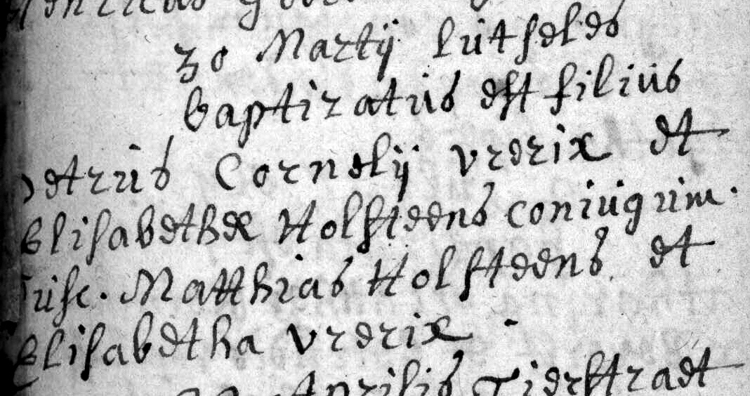 30 Martij lutseles
baptizatus est filius
petrus Cornelij vrerix et
Elisabethæ Holsteens coniugum.
susc. Matthias Holsteens et
Elisabetha vrerix.
Aprilis Tierstraet